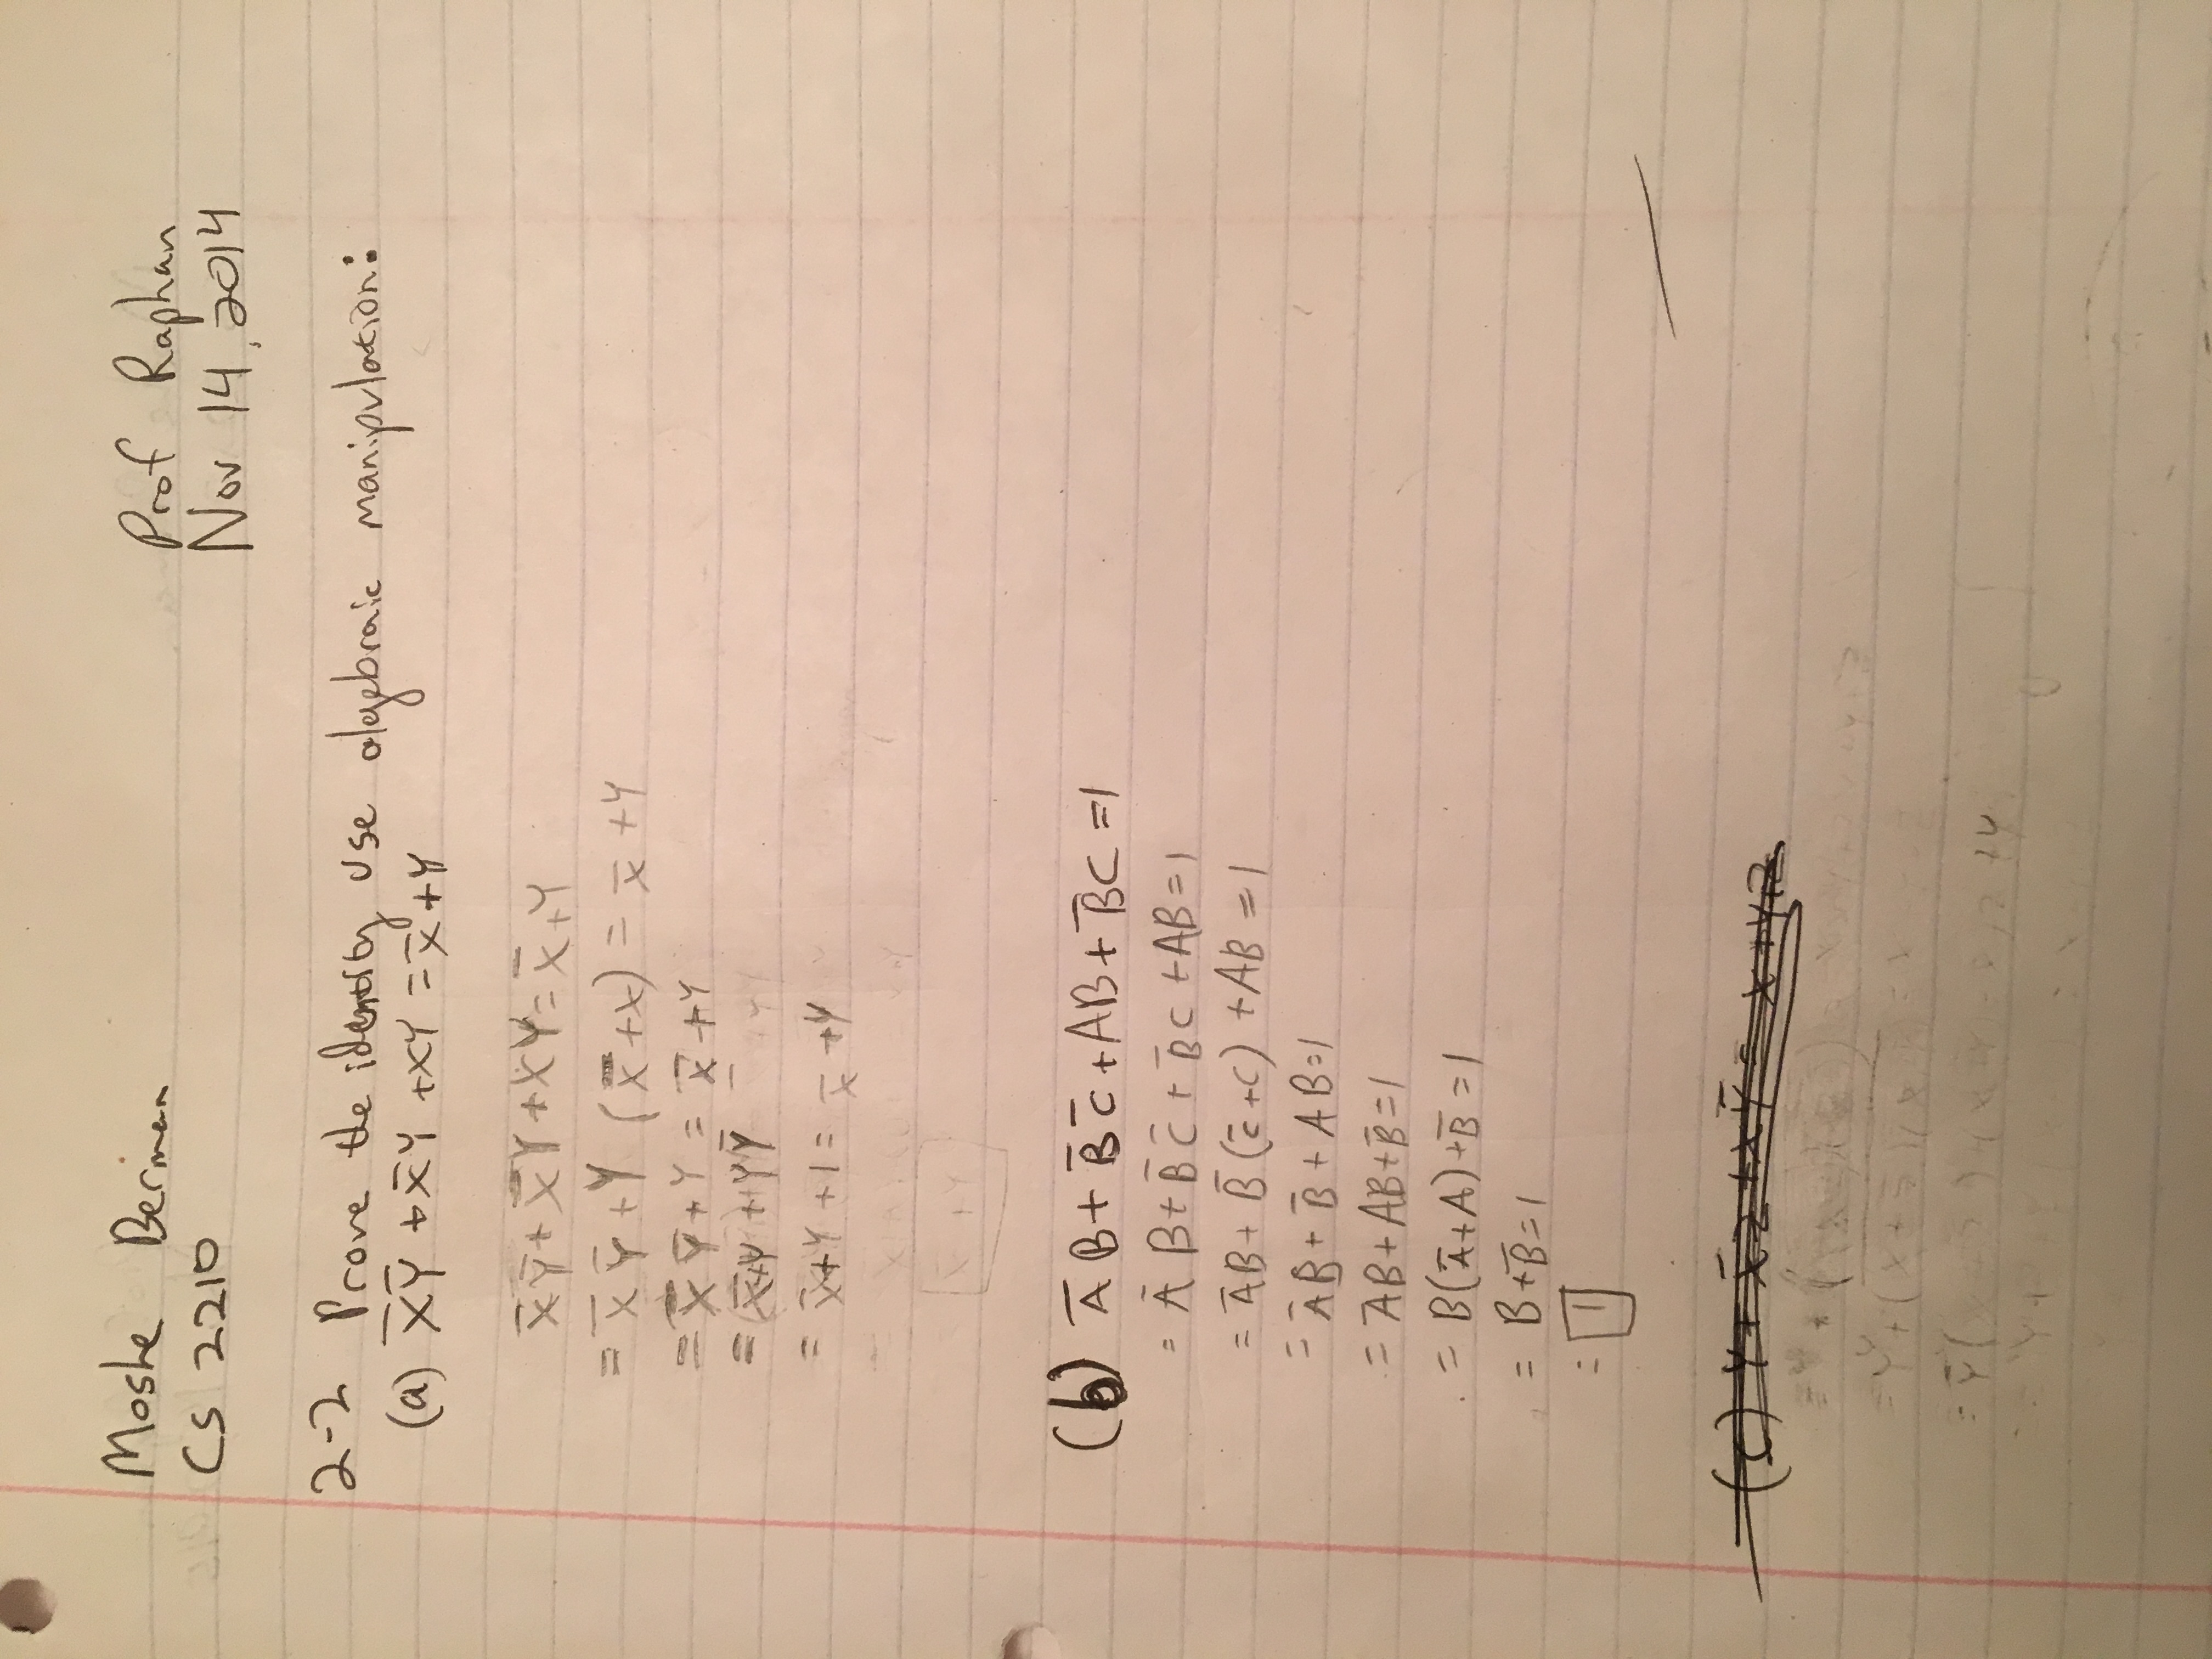 Moshe Berman
CS 2210
Prof Raphan
Nov 14, 2014
2-2 Prove the identity use algebraic manipulation:
(a) X̅Y̅ + X̅Y + XY = X̅ + Y
X̅Y̅ + X̅Y + XY = X̅ + Y
= X̅Y̅ + Y (X̅ + X) = X̅ + Y
= X̅Y̅ + Y = X̅ + Y
= X̅+Y + YY̅
= X̅+Y + 1 = X̅ + Y
(b) A̅B + B̅C̅ + AB + B̅C = 1
= A̅B + B̅C̅ + B̅C + AB = 1
= A̅B + B̅(C̅+C) + AB = 1
= A̅B + B̅ + AB = 1
= A̅B + AB + B̅ = 1
= B(A̅+A) + B̅ = 1
= B + B̅ = 1
= 1
(c) Y + X̅Z + XY̅ = X+Y+Z